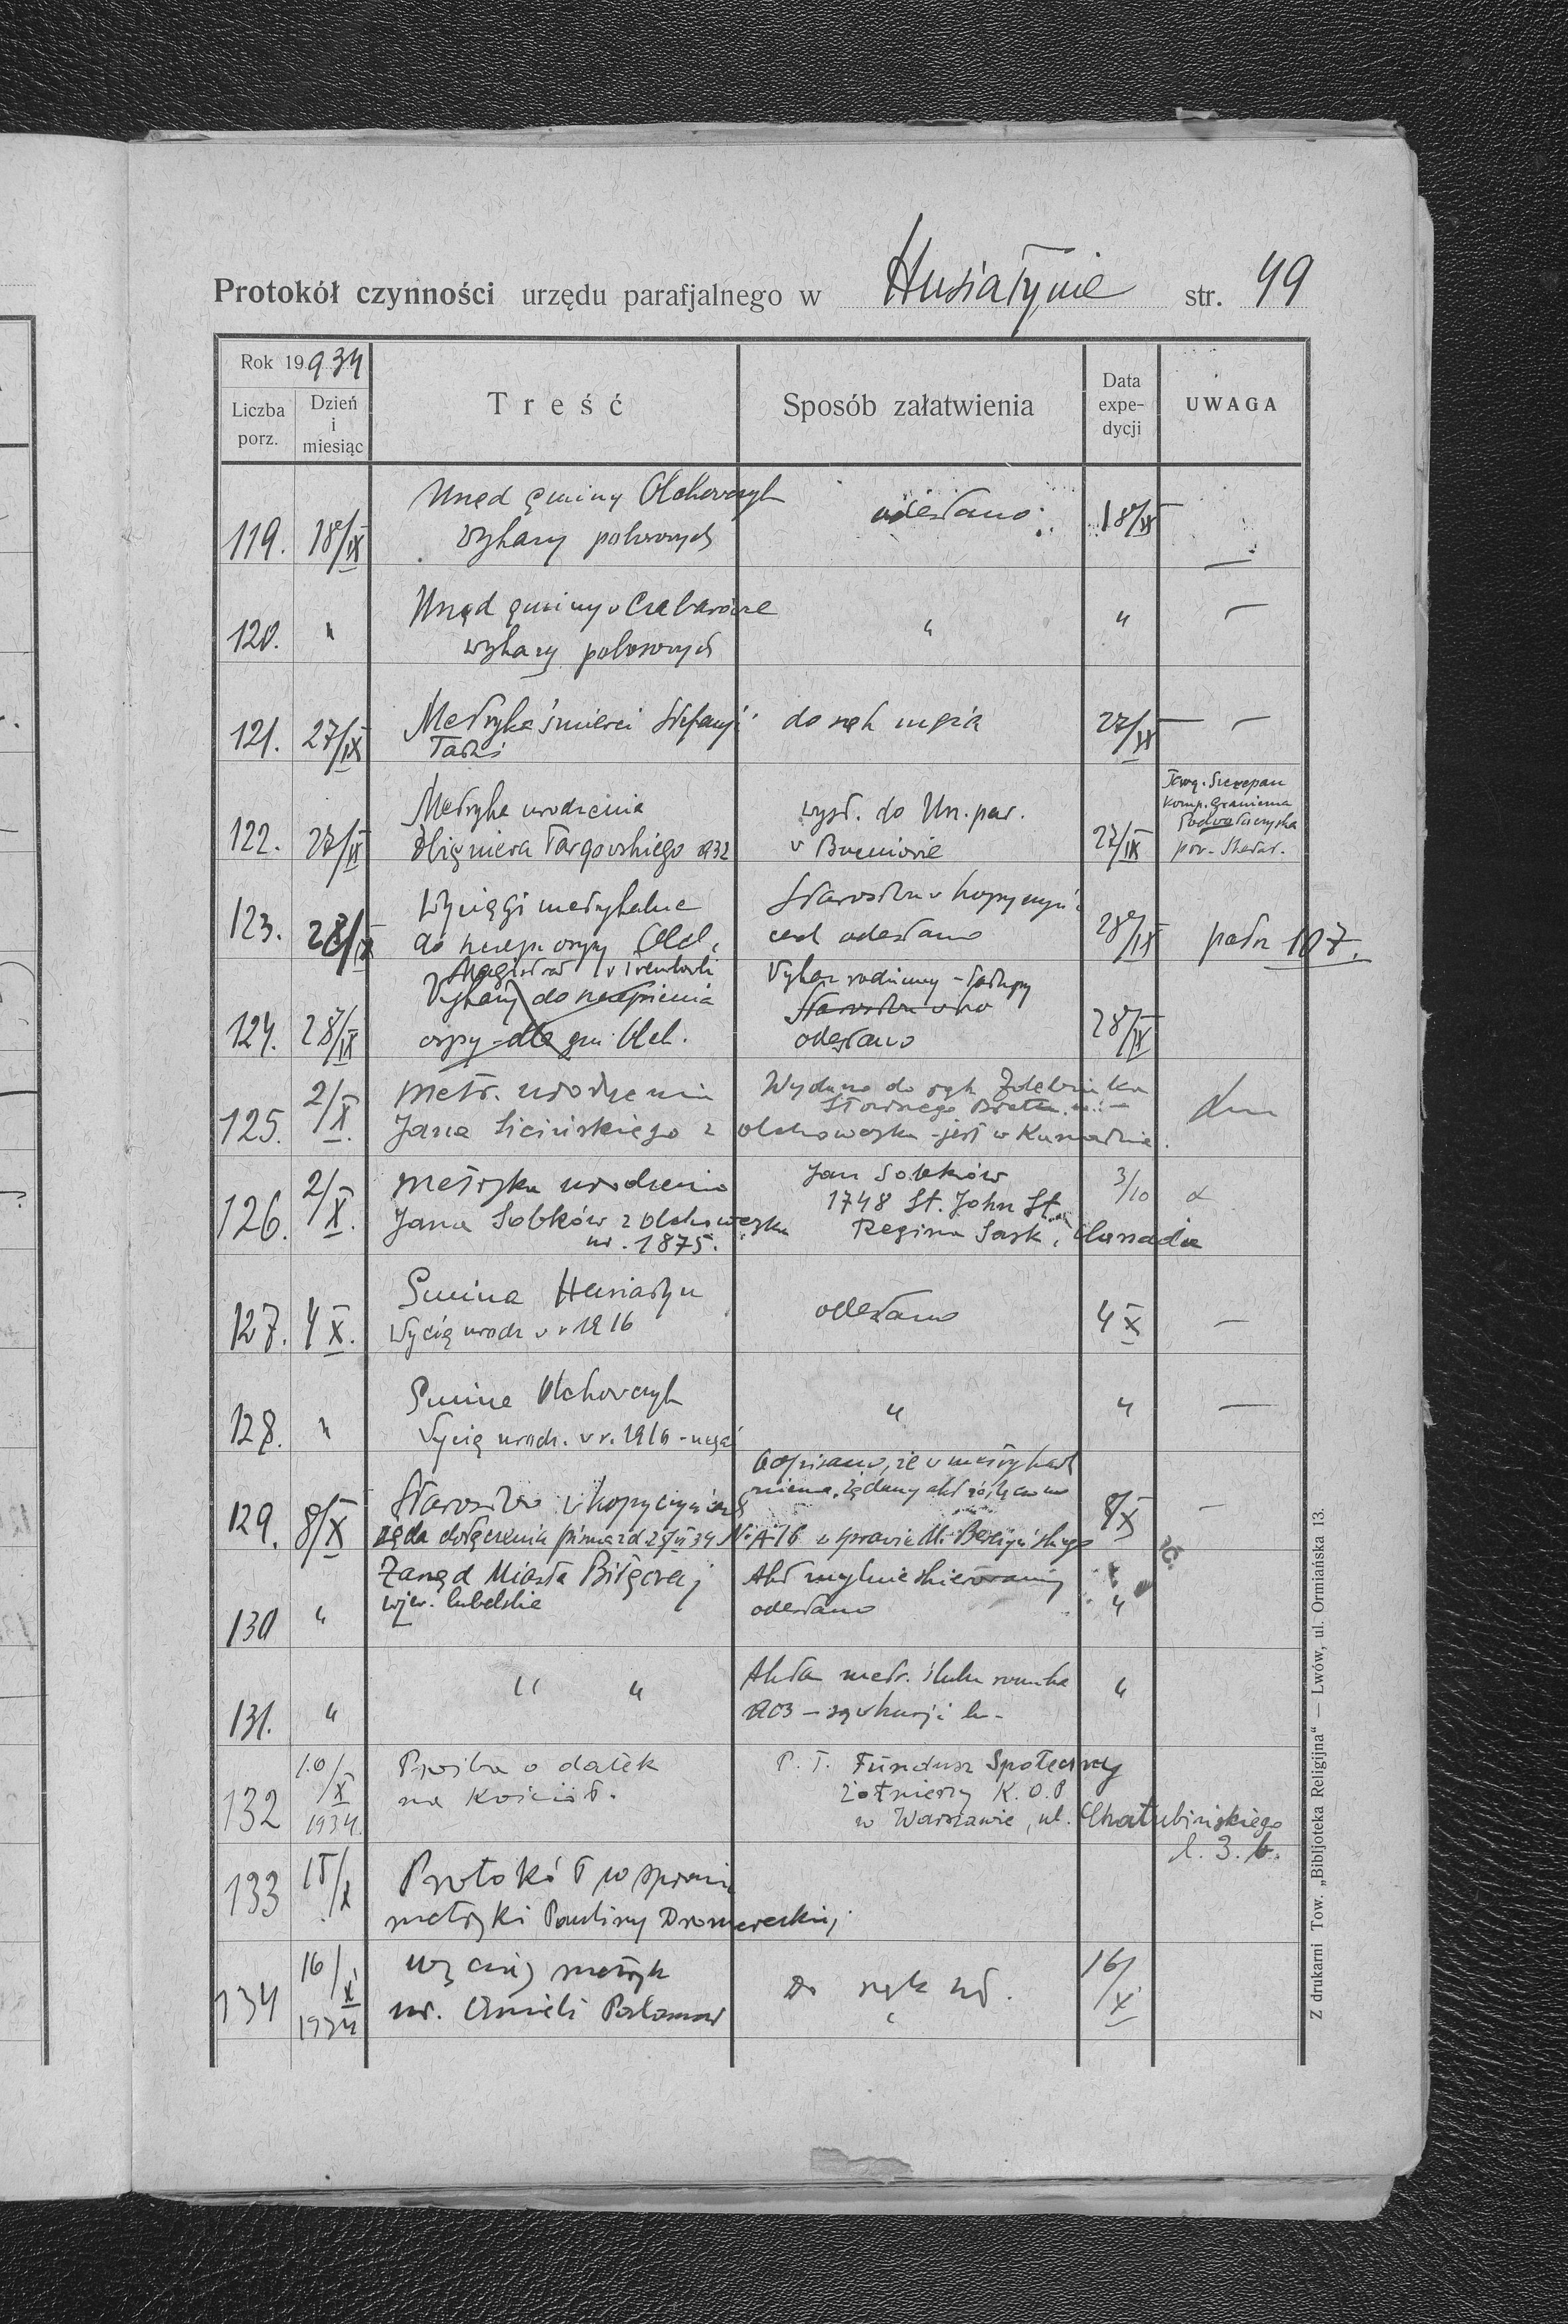 Protokół czynności urzędu parafjalnego w Husiatynie str. 49
Rok 19 934
Liczba porz.
Dzień i miesiąc
Treść
Sposób załatwienia
Data expe-dycji
UWAGA
119. 18/IX Urząd gminy Olchowczyk odesłano 18/IX —
wykazy poborowych
120. " Urząd gminy w Czabarówce " " —
wykazy poborowych
121. 27/IX Metryka śmierci Stefanji do rąk męża 27/IX — —
122. 27/IX Metryka urodzenia wysł. do Urz. par. 27/IX
Zbigniewa Targowskiego 1932 w Buczniowie
Targ. Szczepan
Komp. Graniczna
Podwołoczyska
pow. Skałat.
123. 28/IX Wyciągi metrykalne Starostwu w Kopyczyń 28/IX patrz 107.
do szczep. ospy Olch. cach odesłano
Magistrat w Trembowli
124. 28/IX Wykazy do szczepienia Wykaz rodzinny 28/IX
ospy - dla gm. Olch. Starostwu
odesłano
125. 2/X. Metr. urodzenia Wydano do rąk
Jana Sicińskiego z Olchowczyka - jest w Kanadzie.
126. 2/X. Metryka urodzenia Jan Sobków 3/10
Jana Sobków z Olchowczyka 1748 St. John St.
ur. 1875. Regina Sask. Canada
127. 4 X. Gmina Husiatyn odesłano 4 X —
Wycią urodz w r 1916
128. " Gmina Olchowczyk " " —
Wycią urodz. w r. 1916
129. 8/X Starostwo w Kopyczyńcach Odpisano, że w metrykach 8/X —
niema, żądany akt załączono
żąda dołączenia pisma z d 25/VI 34 Nr A-16 w sprawie M. Berezyńskiego
130 " Zarząd Miasta Biłgoraj Akt mylnie skierowany "
wjew. lubelskie odesłano
131. " " " Akta metr. ślubu "
1903 — są w
132 10/X 1934. Prośba o datek P. T. Fundusz Społeczny
na Kościół. Żołnierzy K. O. P
w Warszawie, ul. Chałubińskiego
l. 3. b.
133 15/X Protokół w sprawie
metryki Pauliny
134 16/X 1934 Wyciąg metryk Do rąk wł. 16/X
ur. Anieli
Z drukarni Tow. „Bibljoteka Religijna" — Lwów, ul. Ormiańska 13.